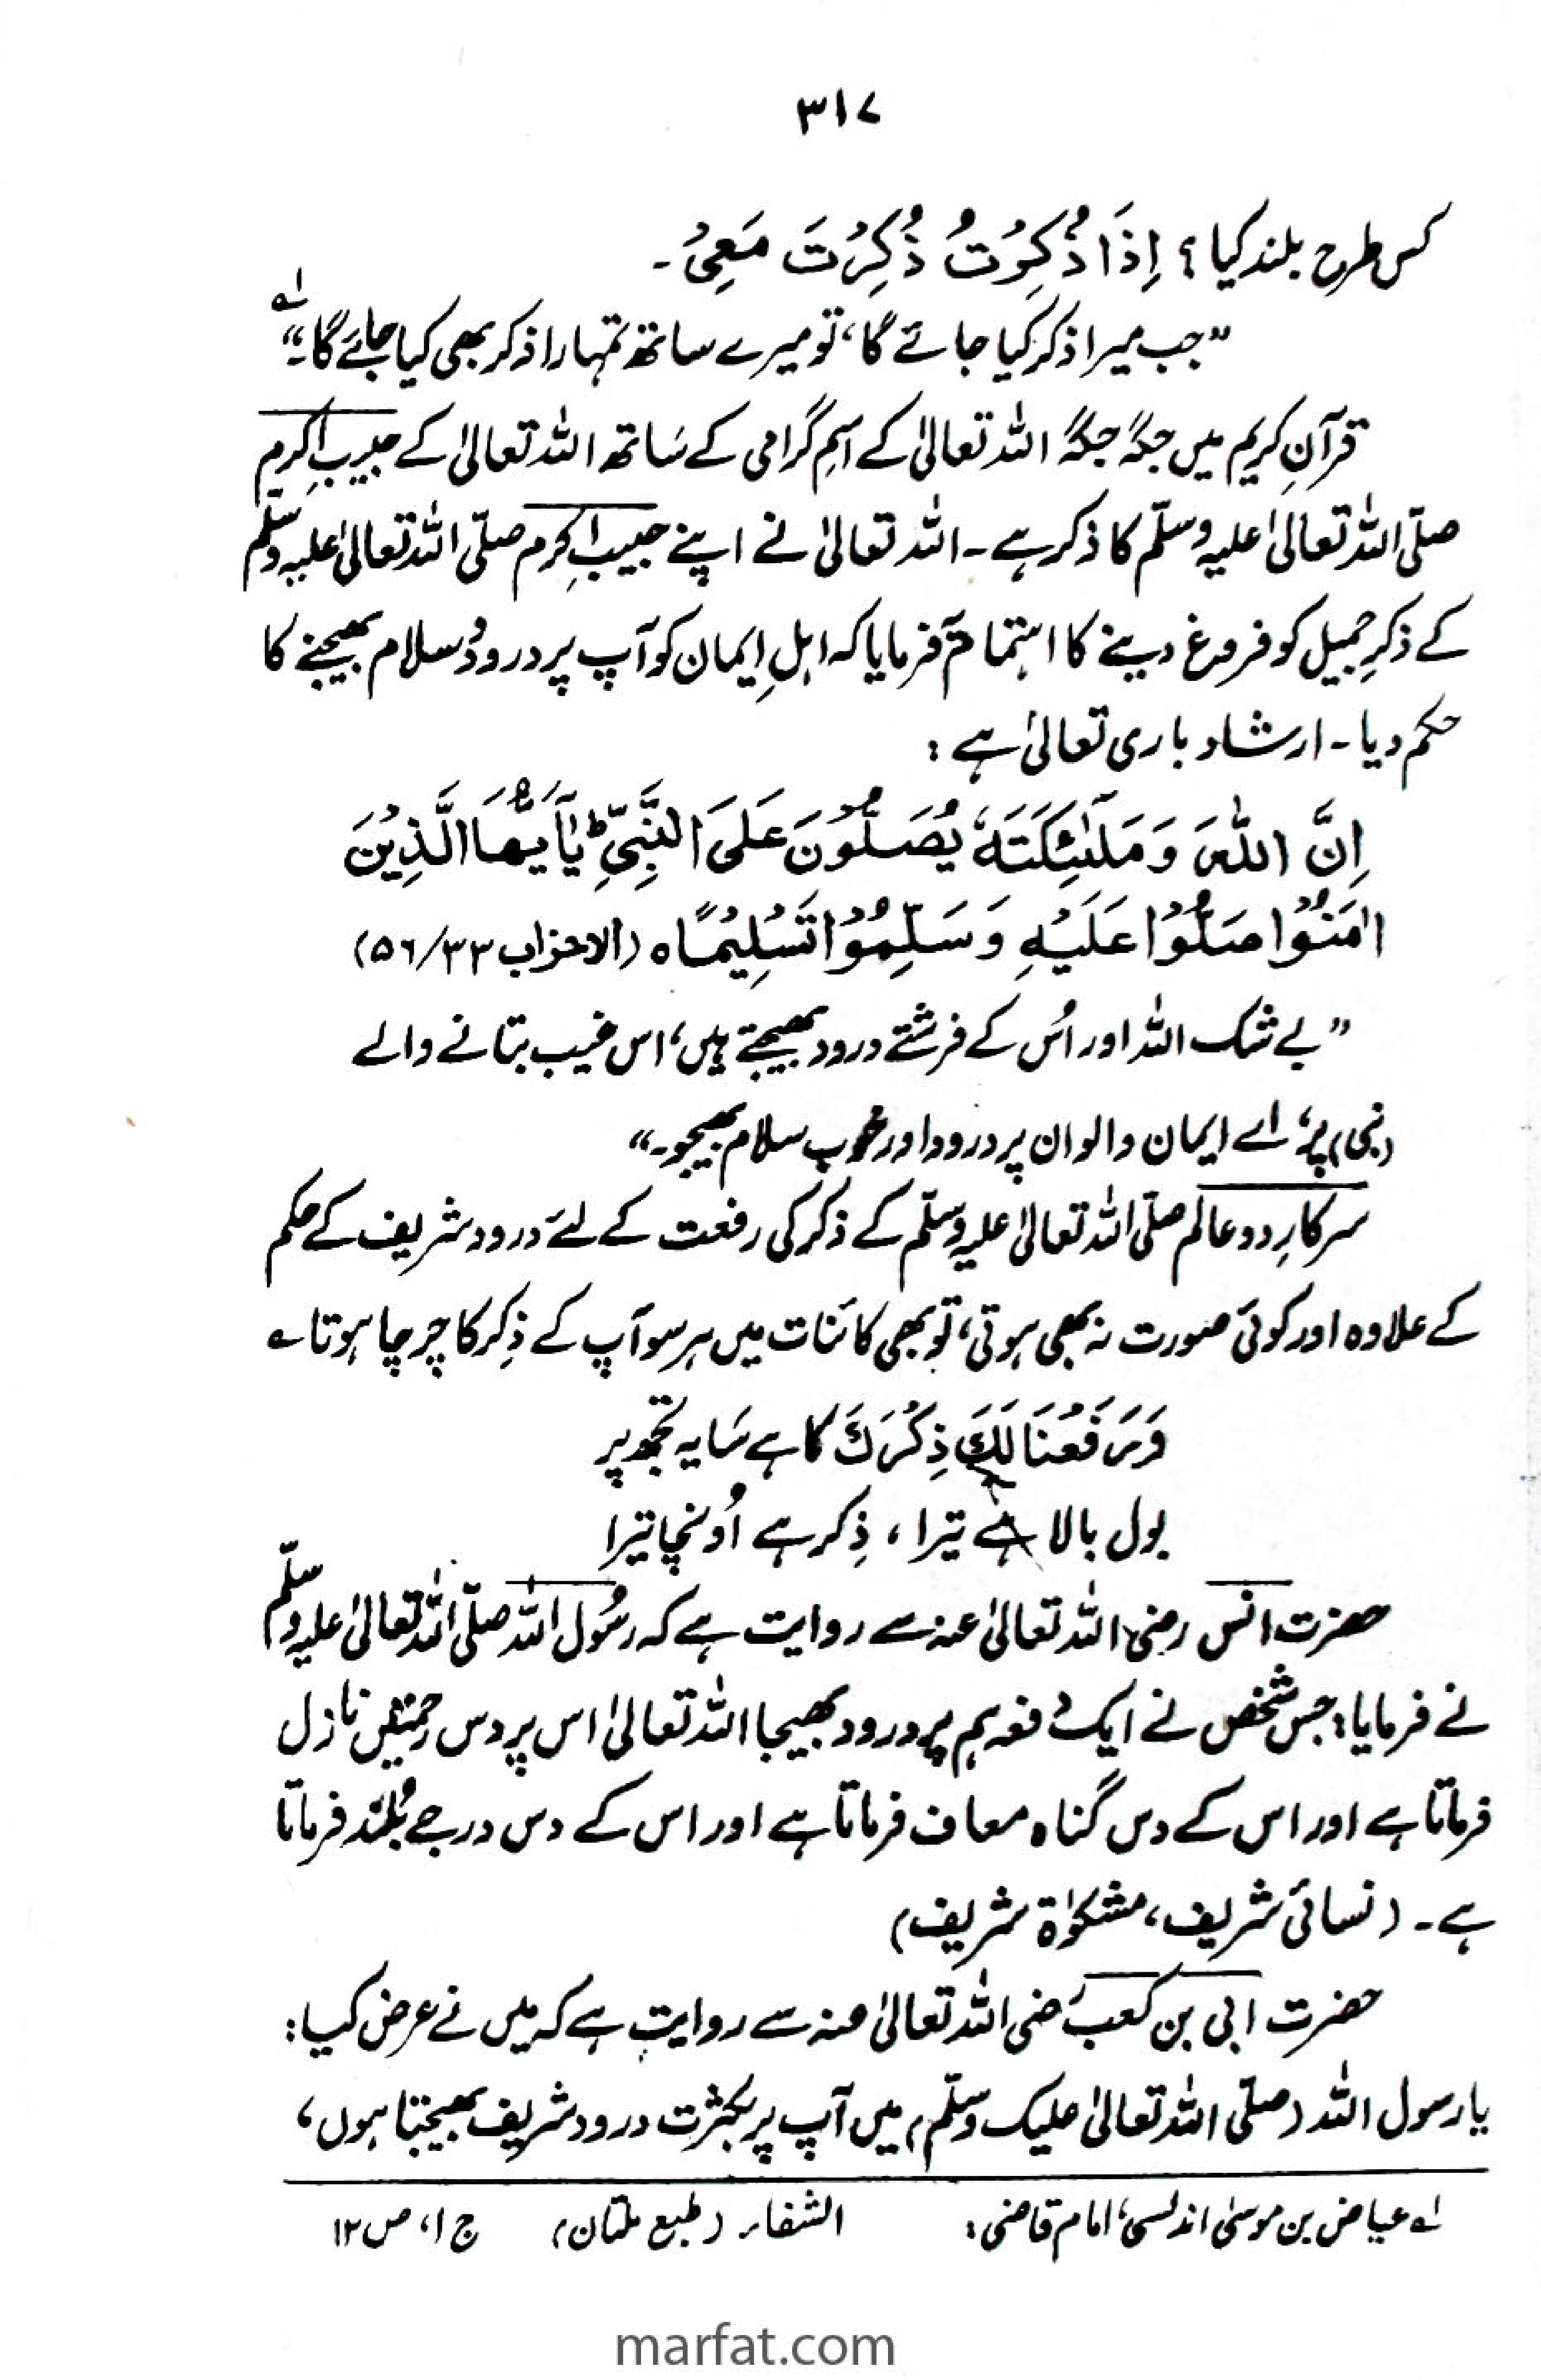 ۳۱۷
کس طرح بلند کیا؟ اِذَا ذُكِرْتُ ذُكِرْتَ مَعِیْ۔
”جب میرا ذکر کیا جائے گا، تو میرے ساتھ تمہارا ذکر بھی کیا جائے گا۔“ لہ
قرآنِ کریم میں جگہ جگہ اللہ تعالیٰ کے اسمِ گرامی کے ساتھ اللہ تعالیٰ کے حبیبِ اکرم
صلّی اللہ تعالیٰ علیہ وسلّم کا ذکر ہے۔ اللہ تعالیٰ نے اپنے حبیبِ اکرم صلّی اللہ تعالیٰ علیہ وسلّم
کے ذکرِ جمیل کو فروغ دینے کا اہتمام فرمایا کہ اہلِ ایمان کو آپ پر درود و سلام بھیجنے کا
حکم دیا۔ ارشاد باری تعالیٰ ہے :
اِنَّ اللّٰهَ وَ مَلٰٓئِكَتَهٗ يُصَلُّوْنَ عَلَى النَّبِيِّ ؕ يٰۤاَيُّهَا الَّذِيْنَ
اٰمَنُوْا صَلُّوْا عَلَيْهِ وَ سَلِّمُوْا تَسْلِيْمًا ہ (الاحزاب ۳۳/۵۶)
”بے شک اللہ اور اُس کے فرشتے درود بھیجتے ہیں، اس غیب بتانے والے
(نبی) پر، اے ایمان والو ان پر درود اور خوب سلام بھیجو۔“
سرکارِ دو عالم صلّی اللہ تعالیٰ علیہ وسلّم کے ذکر کی رفعت کے لئے درود شریف کے حکم
کے علاوہ اور کوئی صورت نہ بھی ہوتی، تو بھی کائنات میں ہر سو آپ کے ذِکر کا چرچا ہوتا ؎
وَ رَفَعْنَا لَكَ ذِكْرَكَ کا ہے سَایہ تجھ پر
بول بالا ہے تیرا ، ذِکر ہے اُونچا تیرا
حضرت انس رضی اللہ تعالیٰ عنہ سے روایت ہے کہ رسُول اللہ صلّی اللہ تعالیٰ علیہ وسلّم
نے فرمایا: جس شخص نے ایک دفعہ ہم پر درود بھیجا اللہ تعالیٰ اس پر دس رحمتیں نازل
فرماتا ہے اور اس کے دس گناہ معاف فرماتا ہے اور اس کے دس درجے بُلند فرماتا
ہے۔ (نسائی شریف، مشکوٰۃ شریف)
حضرت ابی بن کعب رضی اللہ تعالیٰ عنہ سے روایت ہے کہ میں نے عرض کیا :
یا رسول اللہ (صلّی اللہ تعالیٰ علیک وسلّم) میں آپ پر بکثرت درود شریف بھیجتا ہوں،
لہ عیاض بن موسیٰ اندلسی، امام قاضی : الشفاء (طبع ملتان) ج ۱، ص ۱۲
marfat.com